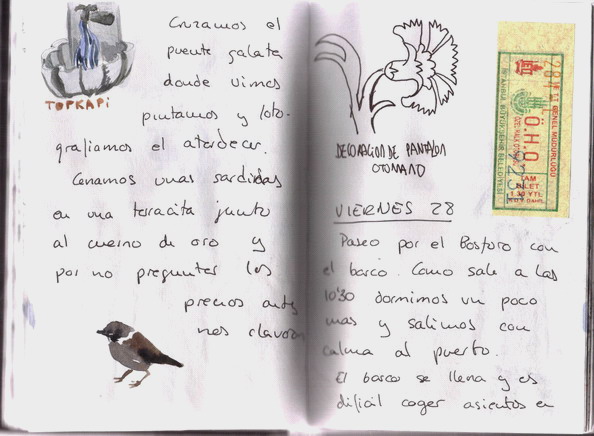 TOPKAPI
Cruzamos el
puente galata
donde vimos
pintamos y foto-
grafiamos el atardecer.
Cenamos unas sardidas
en una terracita junto
al cuerno de oro y
por no preguntar los
precios antes
nos clavaron
DECORACION DE PANTALON
OTOMANO
VIERNES 28
Paseo por el Bosforo con
el barco. Como sale a las
10'30 dormimos un poco
mas y salimos con
calma al puerto.
El barco se llena y es
dificil coger asientos en
Ö.H.O.
TAM
BİLET